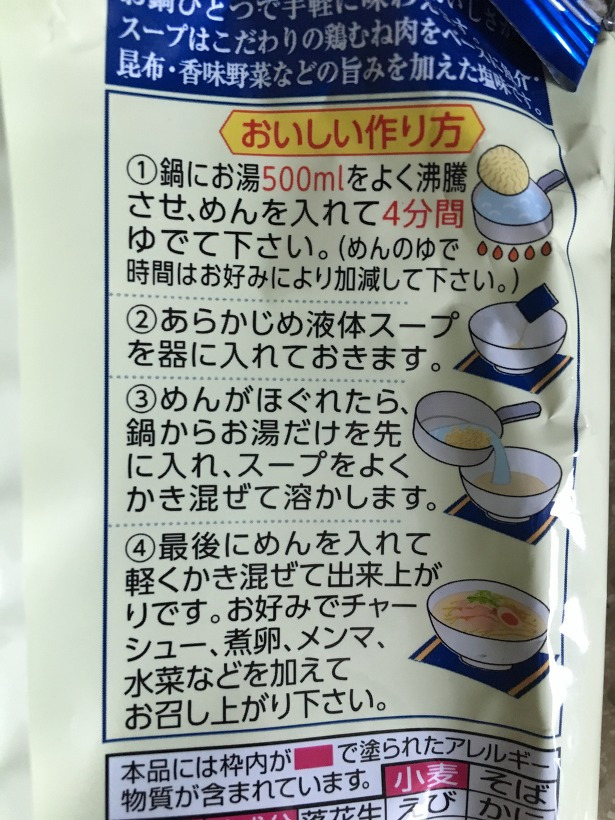 お鍋ひとつで手軽に味わえ
スープはこだわりの鶏むね肉をベースに魚介・
昆布・香味野菜などの旨みを加えた塩味です。
おいしい作り方
①鍋にお湯500mlをよく沸騰
させ、めんを入れて4分間
ゆでて下さい。(めんのゆで
時間はお好みにより加減して下さい。)
②あらかじめ液体スープ
を器に入れておきます。
③めんがほぐれたら、
鍋からお湯だけを先
に入れ、スープをよく
かき混ぜて溶かします。
④最後にめんを入れて
軽くかき混ぜて出来上が
りです。お好みでチャー
シュー、煮卵、メンマ、
水菜などを加えて
お召し上がり下さい。
本品には枠内が で塗られたアレルギー
物質が含まれています。 小麦 そば
落花生 えび かに